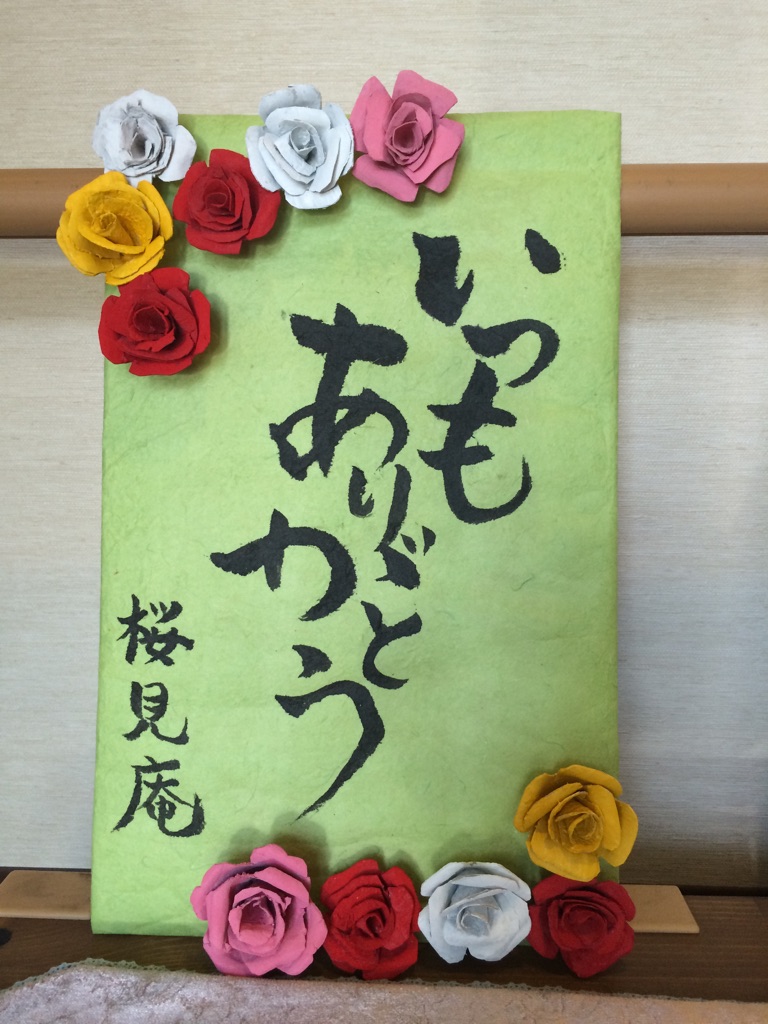 いつも
ありがとう
桜見庵